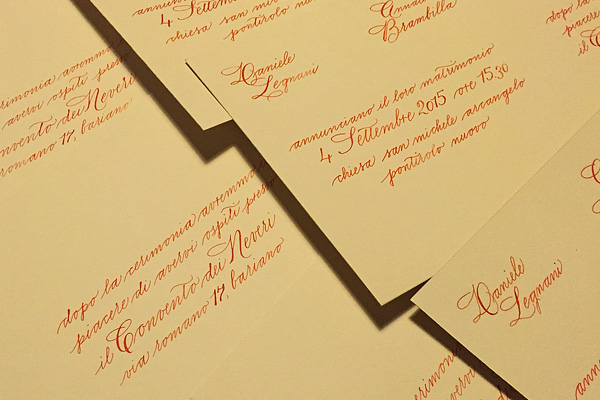 annunciano
4 Settembre
chiesa san
pontirolo
Anna
Brambilla
dopo la
piacere
il
Daniele
Legnani
annunciano il loro matrimonio
4 Settembre 2015 ore 15,30
chiesa san michele arcangelo
pontirolo nuovo
cerimonia avremmo
avervi ospiti presso
Convento dei Neveri
romano 17, bariano
dopo la cerimonia avremmo
piacere di avervi ospiti presso
il Convento dei Neveri
via romano 17, bariano
Daniele
Legnani
cerimonia
avervi